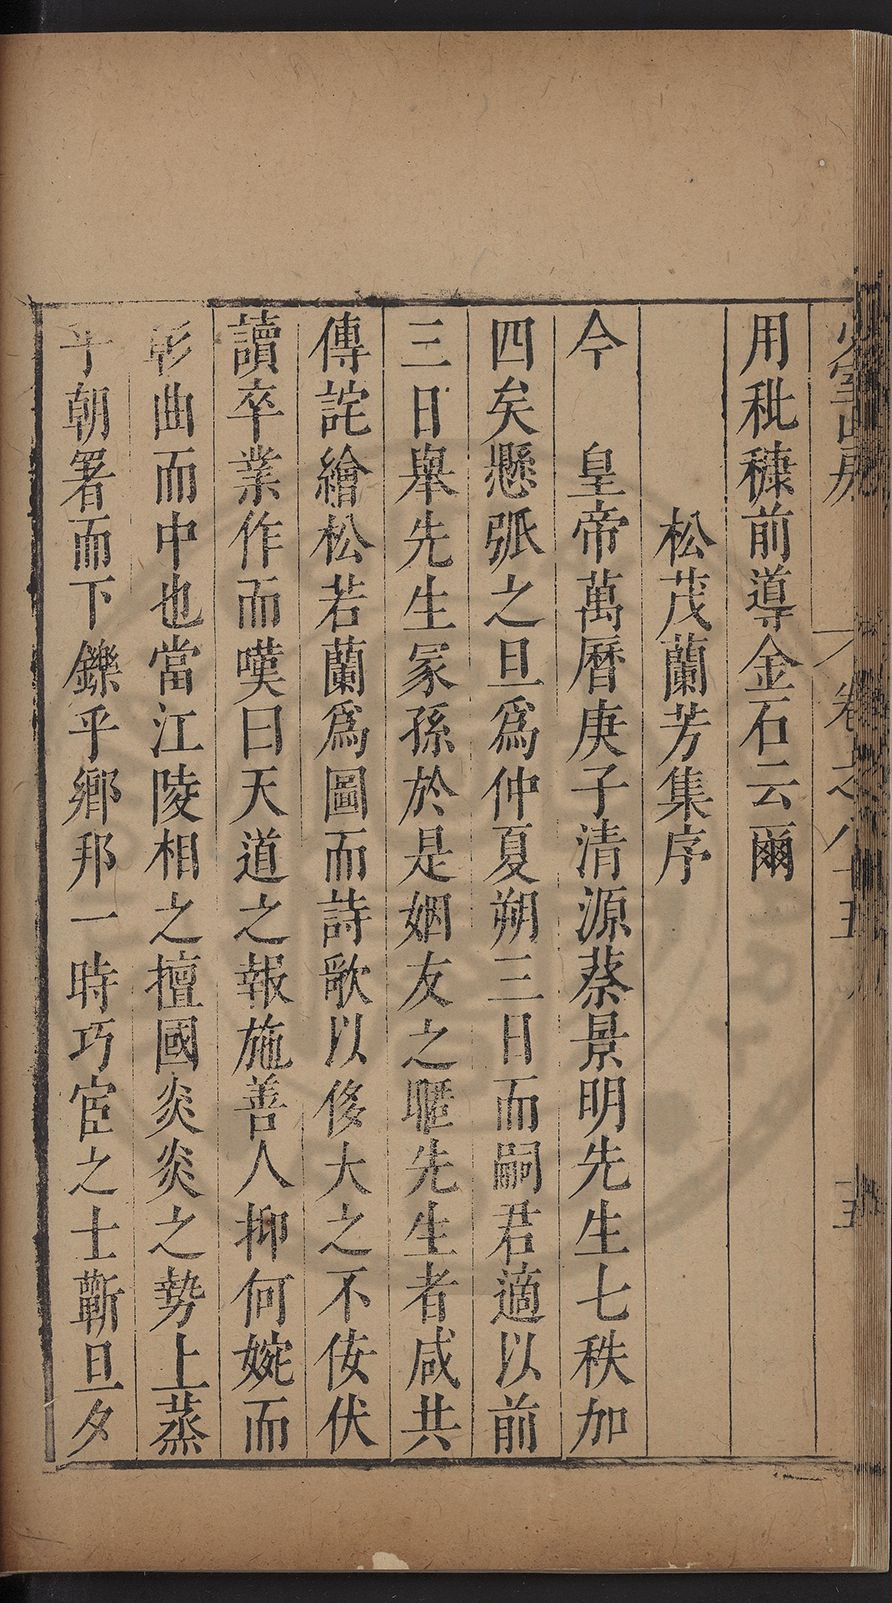 少室山房　卷之八十五　十五
用秕穅前導金石云爾
松茂蘭芳集序
今　皇帝萬曆庚子清源蔡景明先生七秩加
四矣懸弧之旦爲仲夏朔三日而嗣君適以前
三日舉先生冢孫於是姻友之暱先生者咸共
傳詫繪松若蘭爲圖而詩歌以侈大之不佞伏
讀卒業作而嘆曰天道之報施善人抑何婉而
彰曲而中也當江陵相之擅國炎炎之勢上蒸
乎朝署而下鑠乎鄉邦一時巧宦之士蘄旦夕